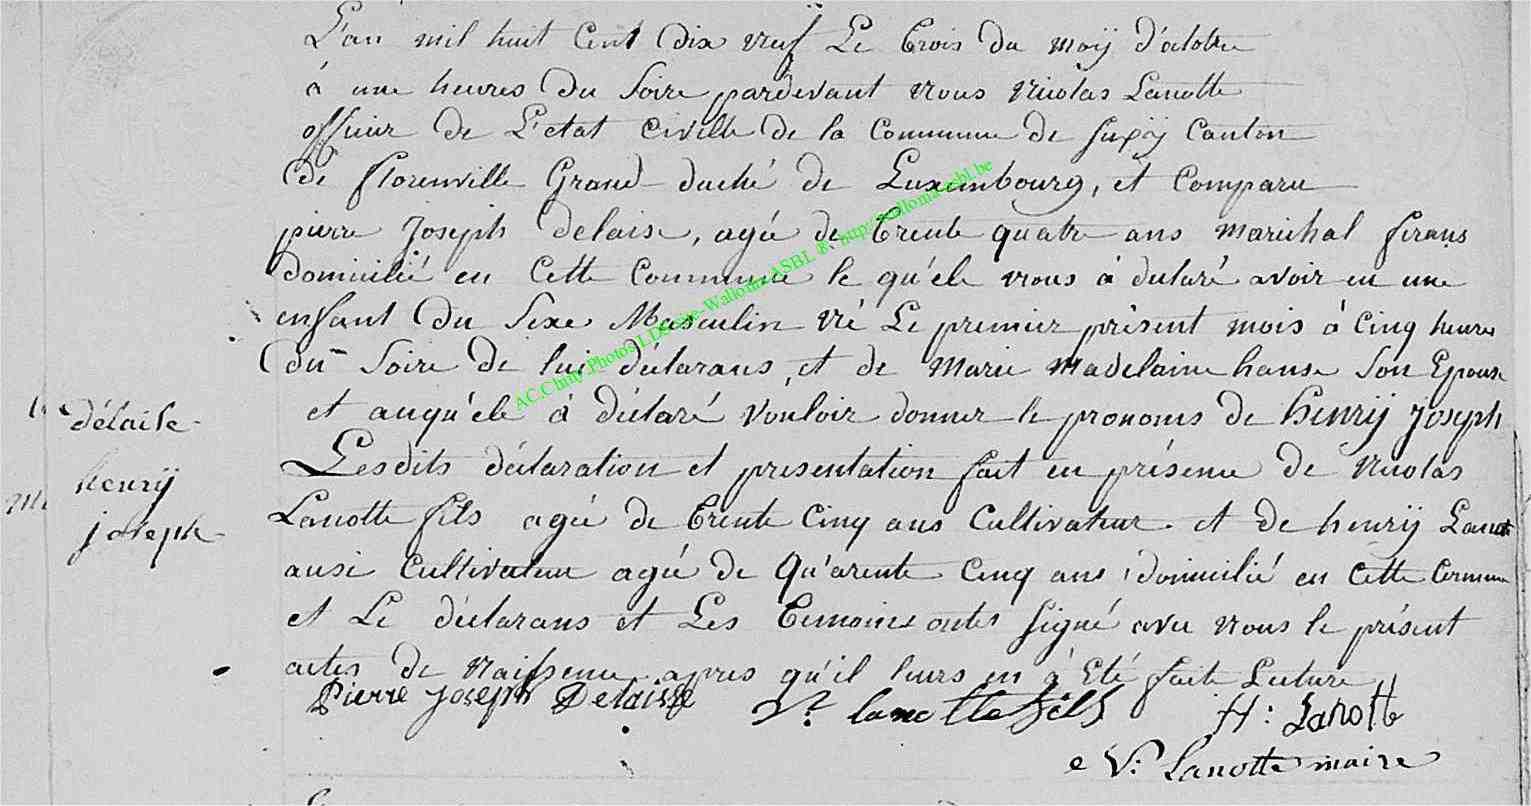 L'an mil huit Cent dix neuf Le trois du moÿ d'actobre
à une heures Du Soire pardevant nous Nicolas Lanotte
officier de L'etat Civille de la Commune de Suxÿ Canton
De florenville Grand duché de Luxembourg, et Comparu
pierre Joseph delaise, agée de trente quatre ans marichal ferans
domicilié en Cette Commune le qu'ele nous à déclaré avoir eu une
enfant Du Sexe Masculin né Le premier présent mois à Cinq heures
Du Soire De lui déclarans, et de Marie Madelaine hanse Son Epouse
et auqu'ele à déclaré vouloir donner le pronoms de henrÿ Joseph
Lesdits déclaration et presentation fait en présence de Nicolas
Lanotte fils agée de trente Cinq ans Cultivateur. et de henrÿ Lanott
ausi Cultivateur agée de Qu'arente Cinq ans, domicilié en Cette Commune
et Le déclarans et Les temoins ontes signé avec nous le présent
actes de Naissence apres qu'il leurs en à Eté fait Lecture
délaise
henrÿ
joseph
Pierre Joseph Delaisse
Ns lanotte fils
H: Lanotte
N: Lanotte maire
AC.Chiny Photos L.Destrée-Wallonia ASBL ® http://wallonia-asbl.be